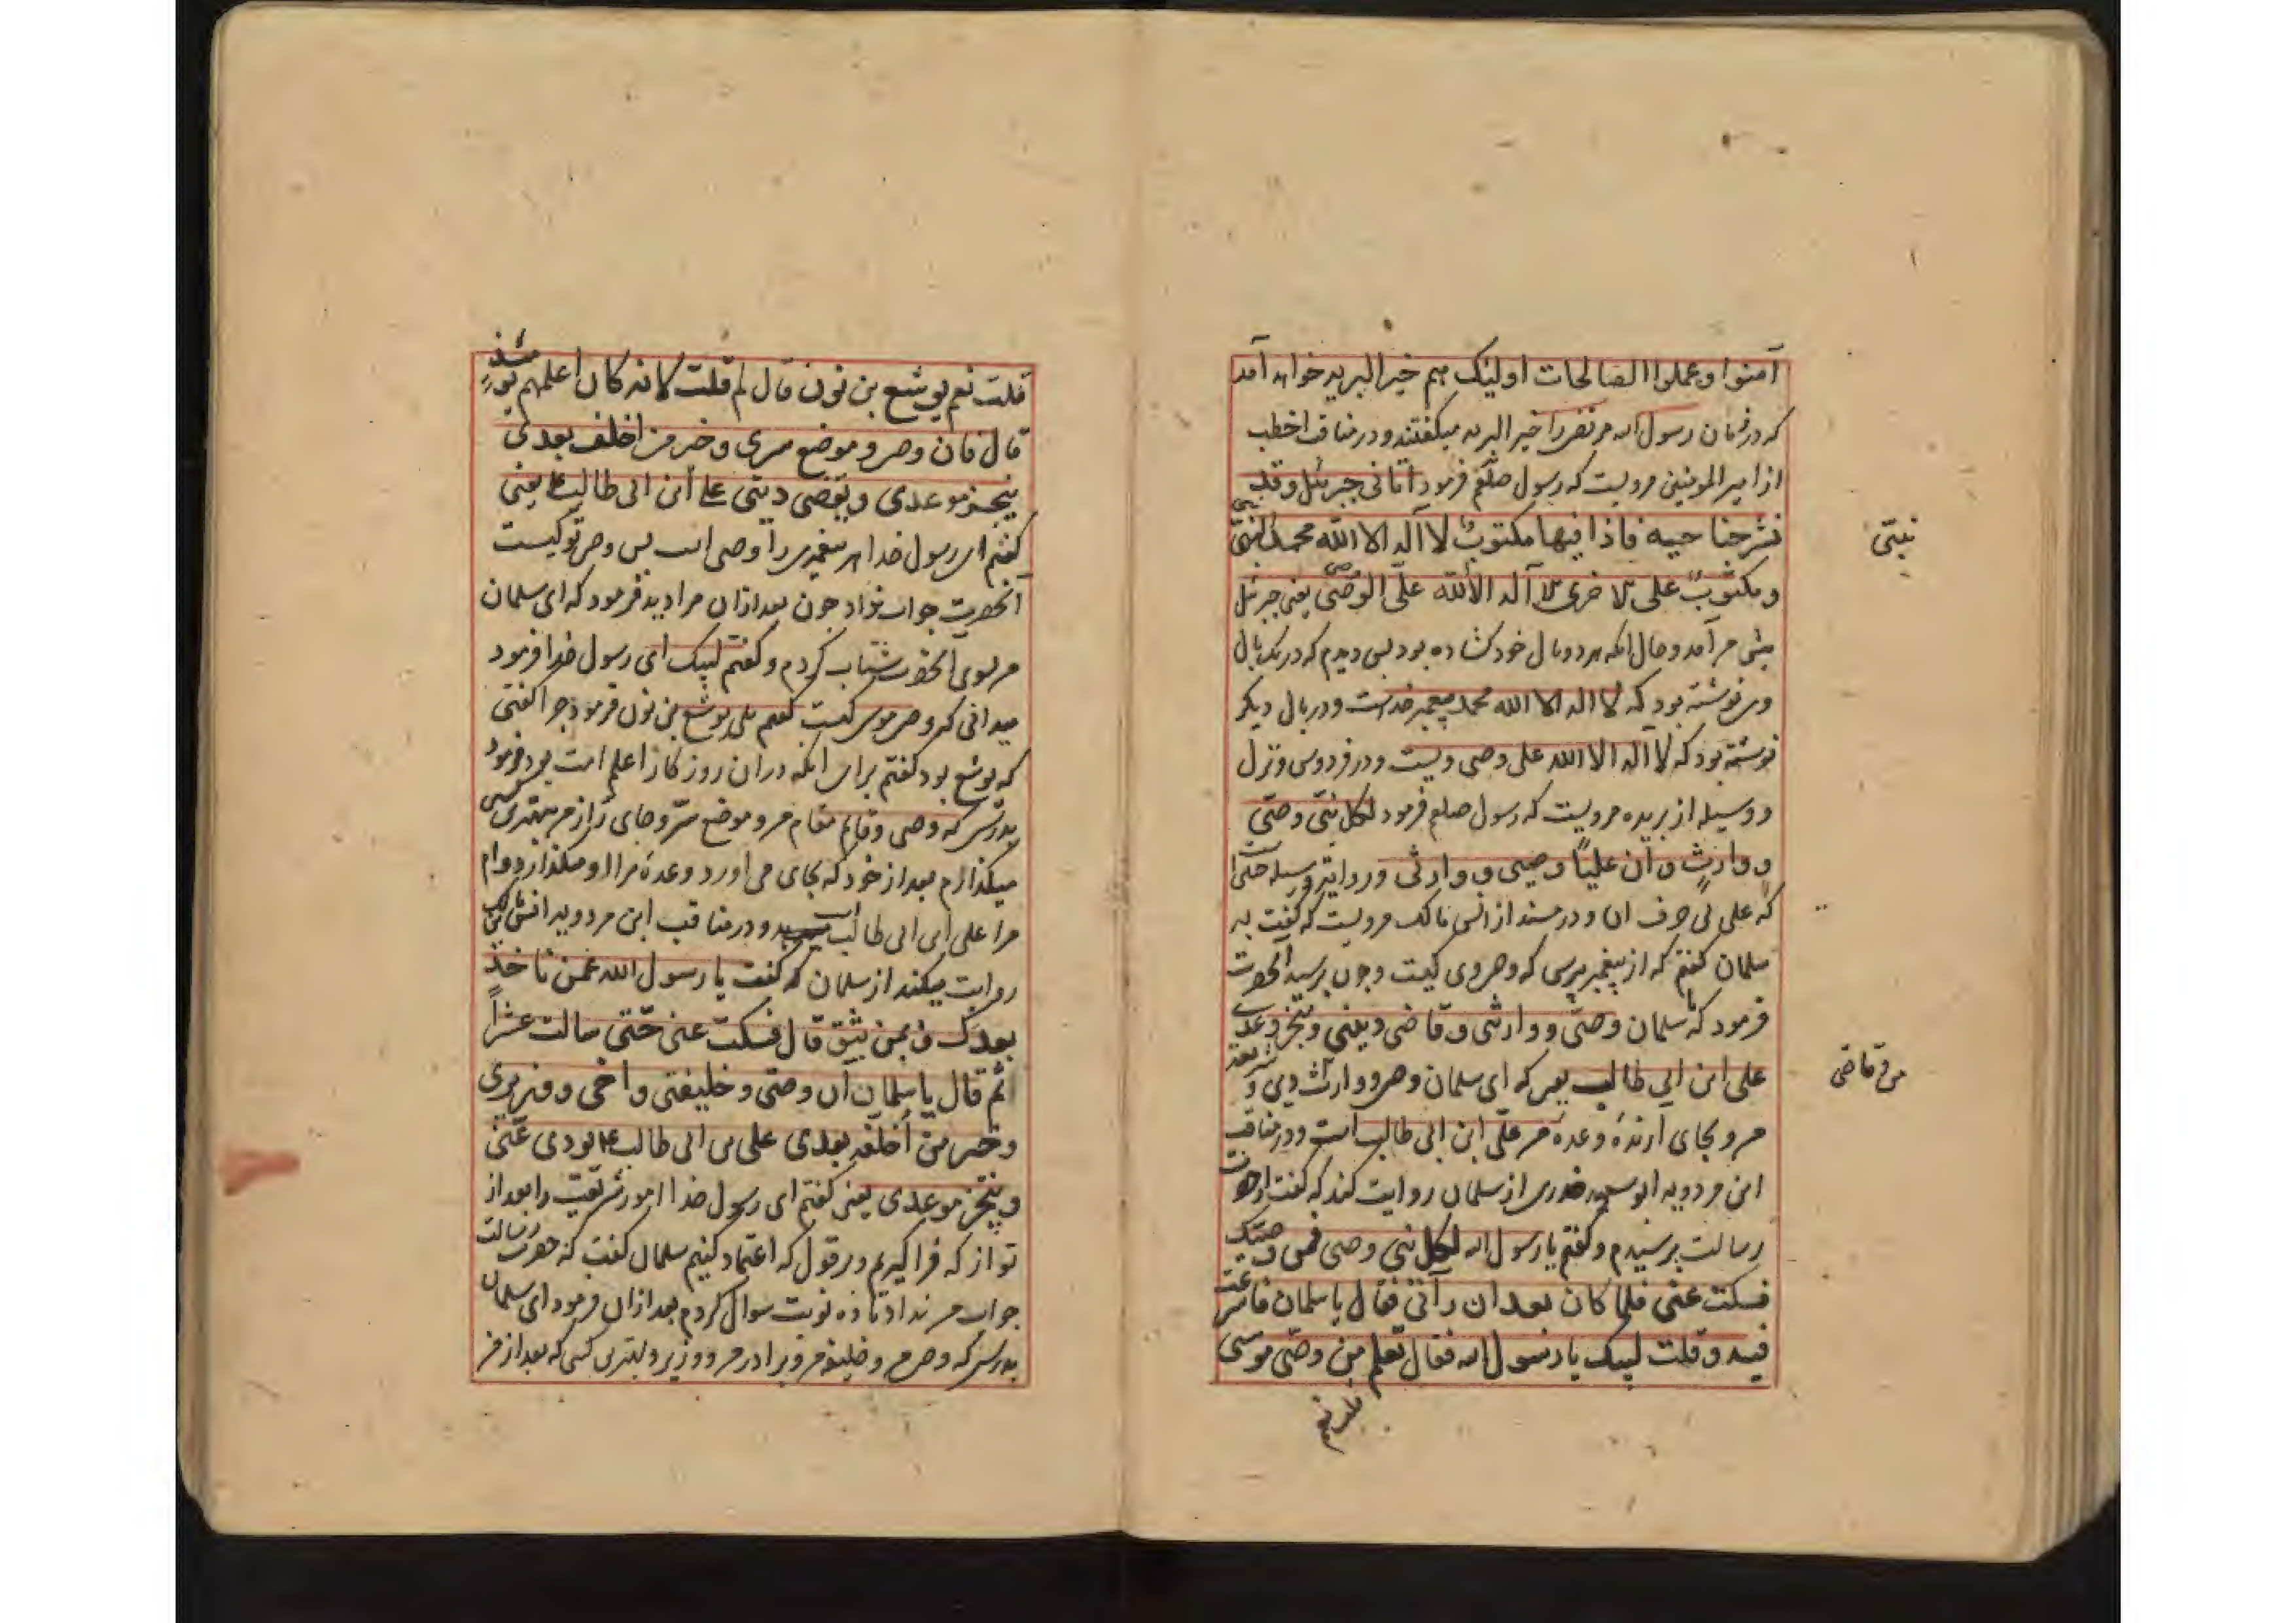 آمنوا و عملوا الصالحات اولیٔک هم خیر البریه خواهد آمد
که در زمان رسول الله مرتضی را خیر البریه میگفتند و در مناقب اخطب
از امیر المومنین مرویست که رسول صلعم فرمود اتانی جبرئیل و قد
نشر جناحیه فاذا فیها مکتوبٌ لا آله الا الله محمد النبی
و مکتوبٌ علی الاخری لا آله الا الله علی الوصی یعنی جبرئیل
پیش من آمد و حال انکه هر دو بال خود کشاده بود پس دیدم که در یک بال
وی نوشته بود که لا اله الا الله محمد پیغمبر خداست و در بال دیکر
نوشته بود که لا آله الا الله علی وصی ویست و در فردوس و نزل
و وسیله از بریده مرویست که رسول صلعم فرمود لکل نبیّ وصیّ
و وارثٍ و ان علیاً وصیی و وارثی و در وسیله
که علی بی حرف ان و در مسند از انس مالک مرویست که کفت به
سلمان کفتم که از پیغمبر بپرسی که وصی وی کیست و چون پرسید آنحضرت
فرمود که سلمان وصیّ و وارثی و قاضی دینی و ینجز وعدی
علی ابن ابی طالب یعنی که ای سلمان وصی و وارث
من و بجای آرندهٔ وعدهٔ من علی ابن ابی طالب است و در مناقب
ابن مردویه ابو سعید خدری از سلمان روایت کند که کفت از حضرت
رسالت پرسیدم و کفتم یا رسول الله لکل نبی وصی فمن وصیک
فسکت عنی فلما کان بعد ان رآنی فقال یا سلمان فاسرعت
فیه و قلت لبیک یا رسول الله فقال تعلم من وصیّ موسی
نبیّی
من و قاضی
قلت نعم
قلت نعم یوشع بن نون قال لم قلت لانه کان اعلمهم یومئذ
قال فان وصی و موضع سری و خیر من اخلف بعدی
ینجز موعدی و یقضی دینی علی ابن ابی طالب یعنی
کفتم ای رسول خدا هر پیغمبری را وصی است پس وصی تو کیست
آنحضرت جواب نداد چون بعد ازان مرا دید فرمود که ای سلمان
من بسوی آنحضرت شتاب کردم و کفتم لبیک ای رسول خدا فرمود
میدانی که وصی موسی کیست کفتم بلی یوشع بن نون فرمود چرا کفتی
که یوشع بود کفتم برای انکه دران روزکار اعلم امت بود فرمود
بدرستی که وصی و قایم مقام من و موضع سرّ و جای راز من بهترین کسی
میکذارم بعد از خود که بجای می آورد وعدهٔ مرا او میکذارد وام
مرا علی ابن ابی طالب است و در مناقب ابن مردویه انس بن مالک
روایت میکند از سلمان که کفت یا رسول الله عمن ناخذ
بعدک و بمن نثق قال فسکت عنی حتی سالت عشراً
ثم قال یا سلمان ان وصیّ و خلیفتی و اخی و وزیری
و خیر من أخلفه بعدی علی بن ابی طالب یودی عنّی
و ینجز موعدی یعنی کفتم ای رسول خدا امور شریعت را بعد از
تو از که فرا کیریم و بر قول که اعتماد کنیم سلمان کفت که حضرت رسالت
جواب من نداد تا ده نوبت سوال کردم بعد ازان فرمود ای سلمان
بدرستی که وصی من و خلیفه من و برادر من و وزیر و بهترین کسی که بعد از من